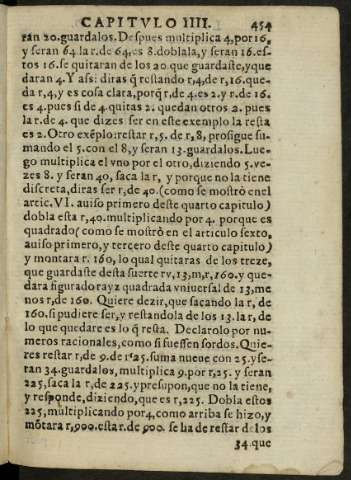 CAPITVLO IIII. 454
ran 20. guardalos. Despues multiplica 4, por 16,
y seran 64 la r. de 64, es 8. doblala, y seran 16. es-
tos 16. se quitaran de los 20 que guardaste, y que
daran 4. Y assi diras q̃ restando r, 4, de r, 16. que-
da r, 4, y es cosa clara, porq̃ r, de 4. es 2. y r. de 16.
es 4. pues si de 4. quitas 2. quedan otros 2. pues
la r. de 4. que dizes ser en este exemplo la resta
es 2. Otro exẽplo: restar r, 5. de r, 8, prosigue su-
mando el 5. con el 8, y seran 13. guardalos. Lue-
go multiplica el vno por el otro, diziendo 5. ve-
zes 8. y seran 40, saca la r, y porque no la tiene
discreta, diras ser r, de 40. (como se mostrò en el
artic. VI. auiso primero deste quarto capitulo)
dobla esta r, 40. multiplicando por 4. porque es
quadrado (como se mostrò en el articulo sexto,
auiso primero, y tercero deste quarto capitulo)
y montara r. 160, lo qual quitaras de los treze,
que guardaste desta suerte rv, 13, m, r, 160. y que-
dara figurado rayz quadrada vniuersal de 13, me
nos r, de 160. Quiere dezir, que sacando la r, de
160. si pudiere ser, y restandola de los 13. la r, de
lo que quedare es lo q̃ resta. Declarolo por nu-
meros racionales, como si fuessen sordos. Quie-
res restar r, de 9. de r 25. suma nueue con 25. y se-
ran 34. guardalos, multiplica 9. por r, 25. y seran
225, saca la r, de 225. y presupon, que no la tiene,
y respõde, diziendo, que es r, 225. Dobla estos
225, multiplicando por 4, como arriba se hizo, y
mõtara r, 900. esta r. de 900. se ha de restar de los
34. que